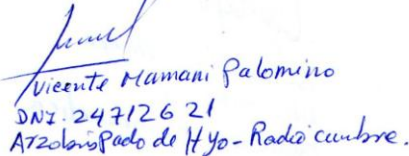 Vicente Mamani Palomino
DNI. 24712621
Arzobispado de Hyo - Radio cumbre.